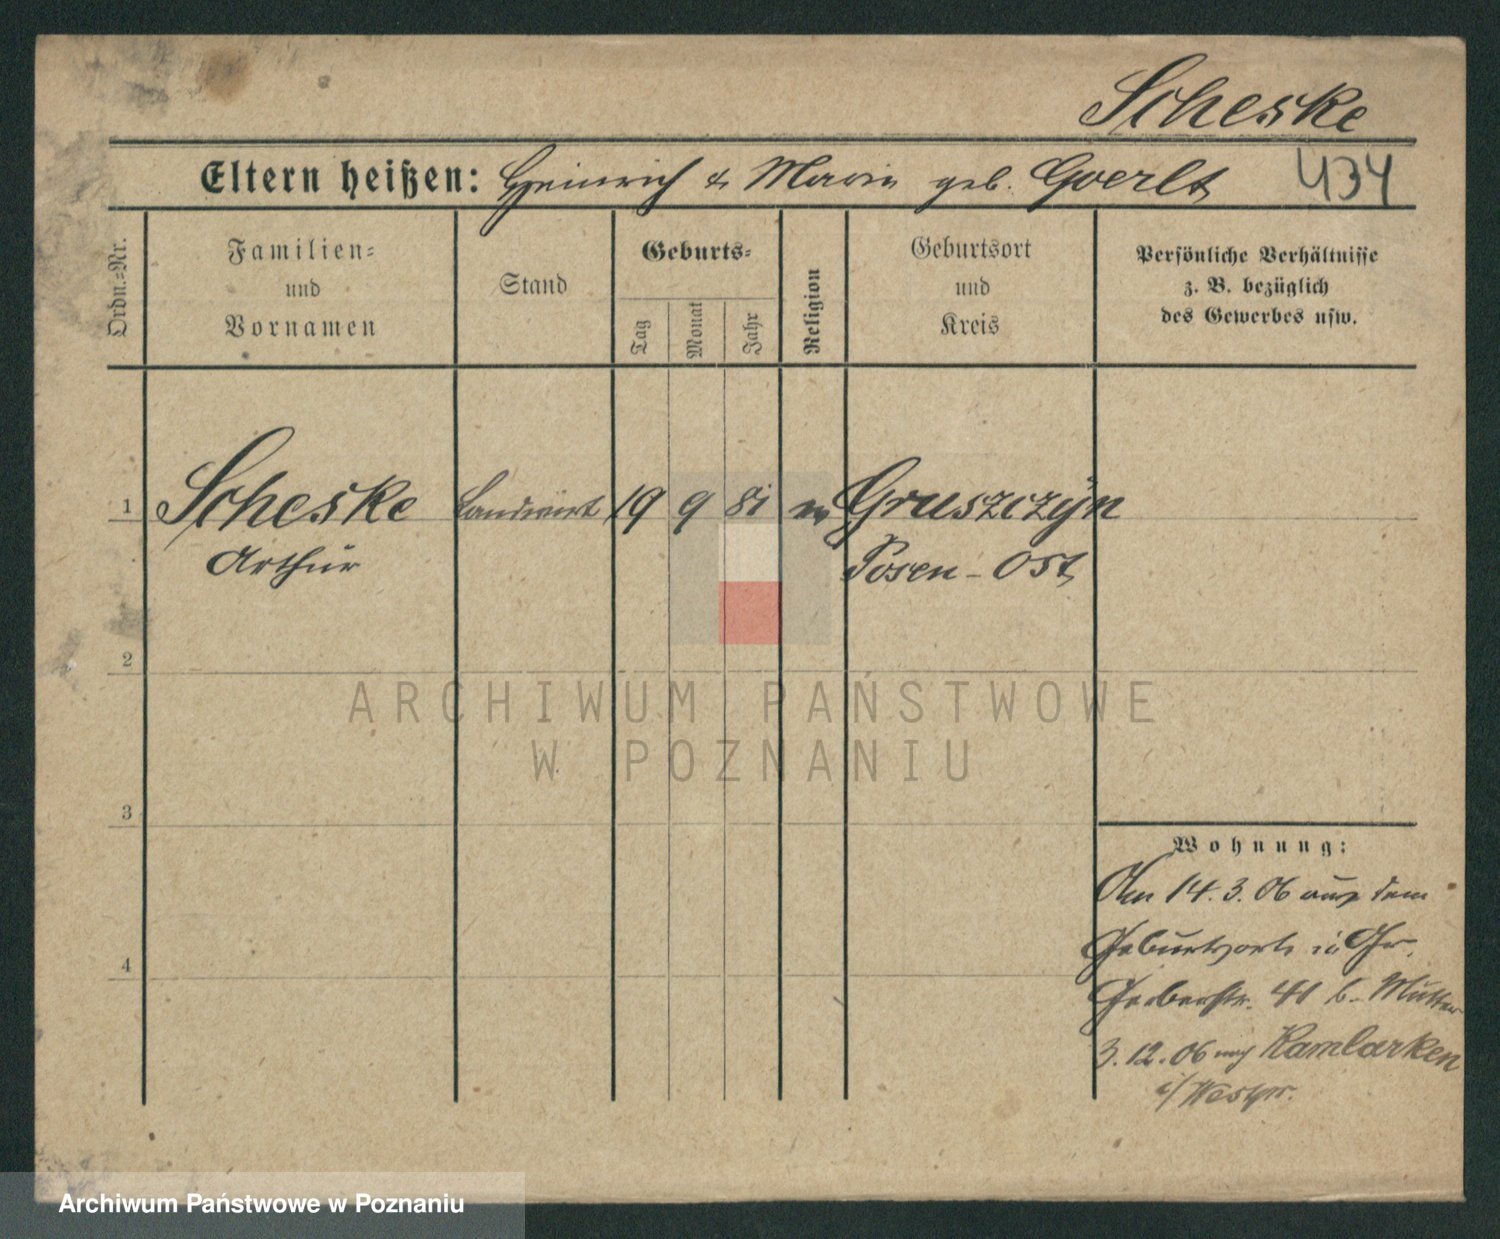 Scheske
Eltern heißen: Heinrich & Marie geb. Goerlt 434
Ordn.-Nr.
Familien-
und
Vornamen
Stand
Geburts-
Tag
Monat
Jahr
Religion
Geburtsort
und
Kreis
Persönliche Verhältnisse
z. B. bezüglich
des Gewerbes usw.
1 Scheske Landwirt 19 9 81 ev Gruszczyn
Arthur Posen-Ost
2
3
4
Wohnung:
Am 14.3.06 aus dem
Geburtsorte in Gr.
Gerberstr. 41 b. Mutter
3.12.06 nach Kamlarken
i/ Westpr.
ARCHIWUM PAŃSTWOWE
W POZNANIU
Archiwum Państwowe w Poznaniu